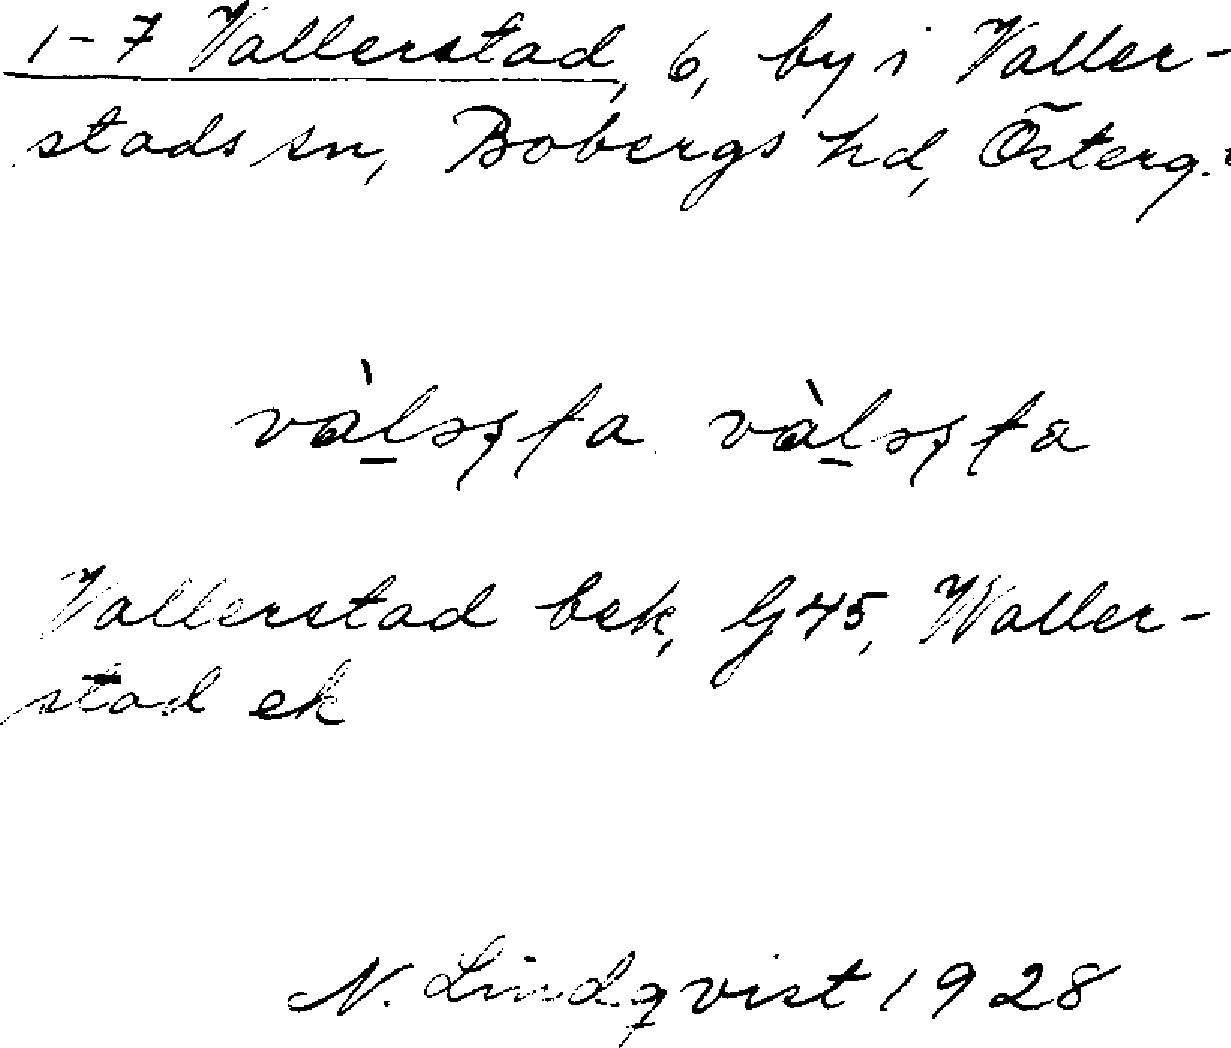 1-7 Vallerstad, 6, by i Valler-
stads sn, Bobergs hd, Österg.
Vallerstad bek, Gj 45, Waller-
stad ek
N. Lindqvist 1928